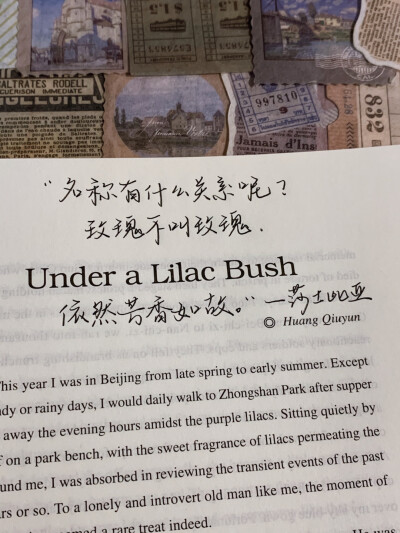 $1.5
ALTRATES RODELL
GUERISON IMMEDIATE
997810
9
Jamais d'Ins
832
“名称有什么关系呢？
玫瑰不叫玫瑰.
Under a Lilac Bush
依然芳香如故。” —莎士比亚
◎ Huang Qiuyun
This year I was in Beijing from late spring to early summer. Except
ndy or rainy days, I would daily walk to Zhongshan Park after supper
away the evening hours amidst the purple lilacs. Sitting quietly by
f on a park bench, with the sweet fragrance of lilacs permeating the
und me, I was absorbed in reviewing the transient events of the past
rs or so. To a lonely and introvert old man like me, the moment of
a rare treat indeed.
He was